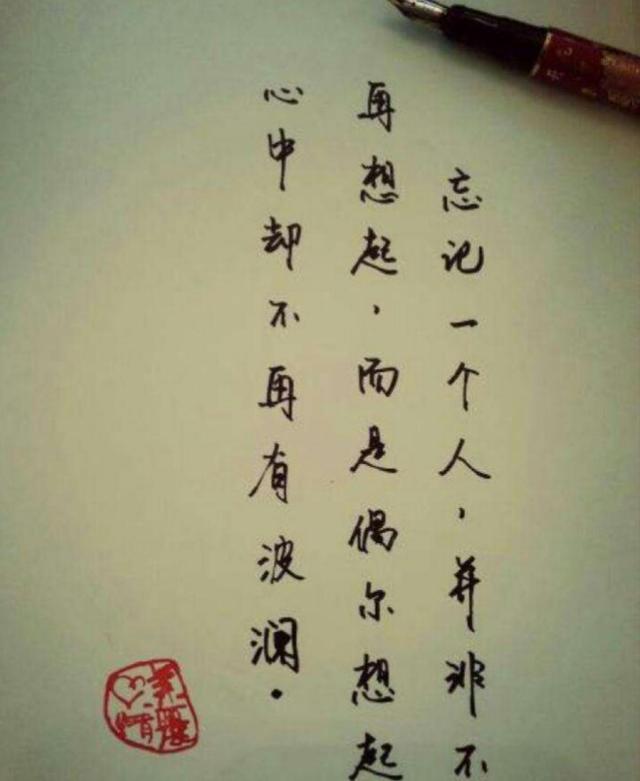 忘记一个人，并非不
再想起，而是偶尔想起
心中却不再有波澜.